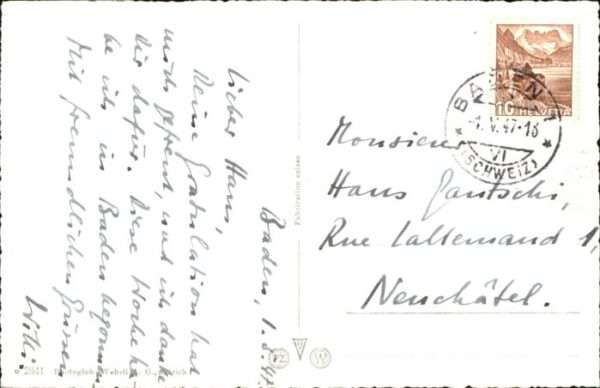 Baden, 1. 5. 47
Lieber Hans,
Deine Gratulation hat
mich gefreut, und ich danke
dir dafür. Diese Woche ha-
be ich in Baden begonnen
Mit freundlichen Grüssen
Willi.
Monsieur
Hans Gautschi,
Rue Lallemand 1,
Neuchâtel.
10 HELVETIA
BADEN 1
-1. V. 47-18
VI
(SCHWEIZ)
Fabrication suisse
2541